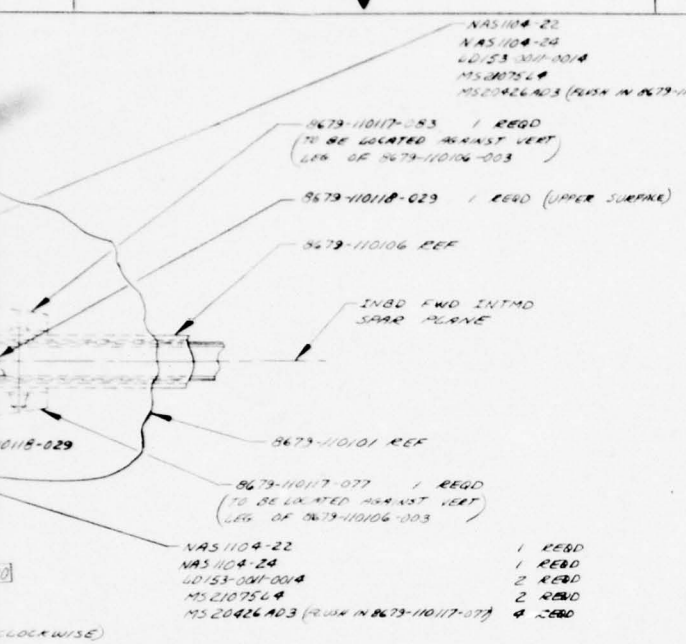 NAS1104-22
NAS1104-24
LD153-0011-0014
MS21075L4
MS20426AD3 (FLUSH IN 8679-11
8679-110117-083 1 REQD
(TO BE LOCATED AGAINST VERT
LEG OF 8679-110106-003)
8679-110118-029 1 REQD (UPPER SURFACE)
8679-110106 REF
INBD FWD INTMD
SPAR PLANE
10118-029
8679-110101 REF
8679-110117-077 1 REQD
(TO BE LOCATED AGAINST VERT
LEG OF 8679-110106-003)
NAS1104-22 1 REQD
NAS1104-24 1 REQD
LD153-0011-0014 2 REQD
MS21075L4 2 REQD
MS20426AD3 (FLUSH IN 8679-110117-077) 4 REQD
CLOCKWISE)